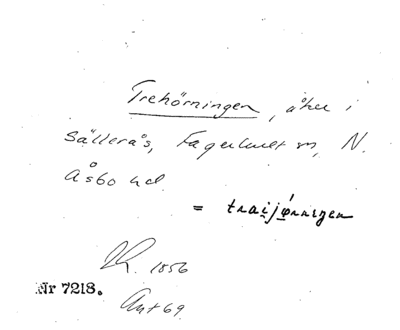 Trehörningen, åker i
Sällerås, Fagerhult sn, N.
Åsbo hd.
= traijǿrnıŋen
1856
Nr 7218.
Ant 69